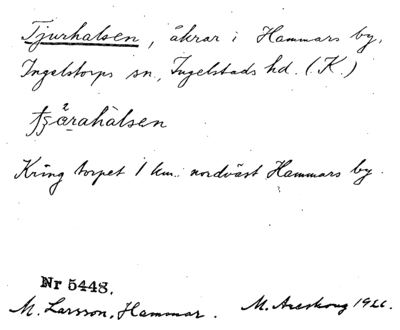 Tjurhalsen, åkrar i Hammars by,
Ingelstorps sn., Ingelstads hd. (K.)
Kring torpet 1 km. nordväst Hammars by.
Nr 5448.
M. Larsson, Hammar. M. Areskoug 1926.